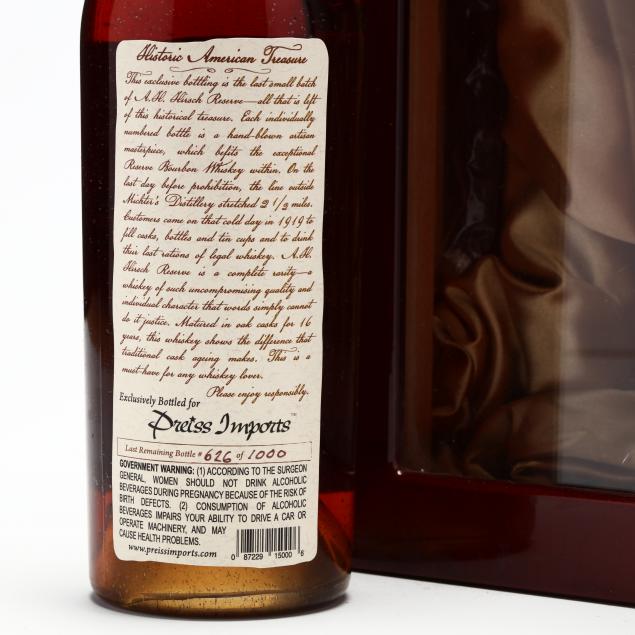 Historic American Treasure
This exclusive bottling is the last small batch
of A.H. Hirsch Reserve—all that is left
of this historical treasure. Each individually
numbered bottle is a hand-blown artisan
masterpiece, which befits the exceptional
Reserve Bourbon Whiskey within. On the
last day before prohibition, the line outside
Michter's Distillery stretched 2 1/2 miles.
Customers came on that cold day in 1919 to
fill casks, bottles and tin cups and to drink
their last rations of legal whiskey. A.H.
Hirsch Reserve is a complete rarity—a
whiskey of such uncompromising quality and
individual character that words simply cannot
do it justice. Matured in oak casks for 16
years, this whiskey shows the difference that
traditional cask ageing makes. This is a
must have for any whiskey lover.
Please enjoy responsibly.
Exclusively Bottled for
Preiss Imports™
Last Remaining Bottle # 626 of 1000
GOVERNMENT WARNING: (1) ACCORDING TO THE SURGEON
GENERAL, WOMEN SHOULD NOT DRINK ALCOHOLIC
BEVERAGES DURING PREGNANCY BECAUSE OF THE RISK OF
BIRTH DEFECTS. (2) CONSUMPTION OF ALCOHOLIC
BEVERAGES IMPAIRS YOUR ABILITY TO DRIVE A CAR OR
OPERATE MACHINERY, AND MAY
CAUSE HEALTH PROBLEMS.
www.preissimports.com
0 87229 15000 8